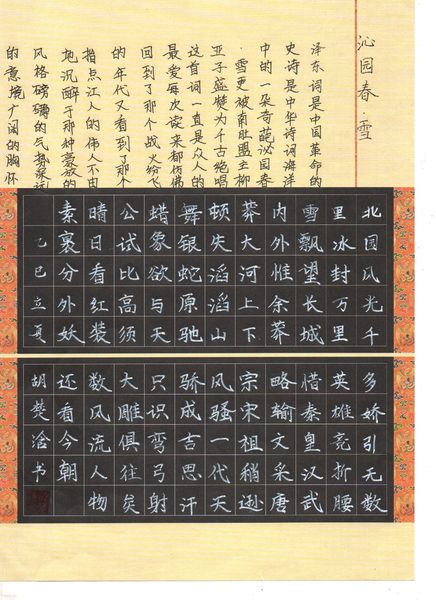 沁园春·雪
泽东词是中国革命的
史诗是中华诗词海洋
中的一朵奇葩沁园春
·雪更被南社盟主柳
亚子盛赞为千古绝唱
这首词一直是众人的
最爱每次读来都仿佛
回到了那个战火纷飞
的年代又看到了那个
指点江山的伟人不由
地沉醉于那种豪放的
风格磅礴的气势深远
的意境广阔的胸怀
北国风光千
里冰封万里
雪飘望长城
内外惟余莽
莽大河上下
顿失滔滔山
舞银蛇原驰
蜡象欲与天
公试比高须
晴日看红装
素裹分外妖
乙巳立夏
多娇引无数
英雄竞折腰
惜秦皇汉武
略输文采唐
宗宋祖稍逊
风骚一代天
骄成吉思汗
只识弯弓射
大雕俱往矣
数风流人物
还看今朝
胡楚浛书